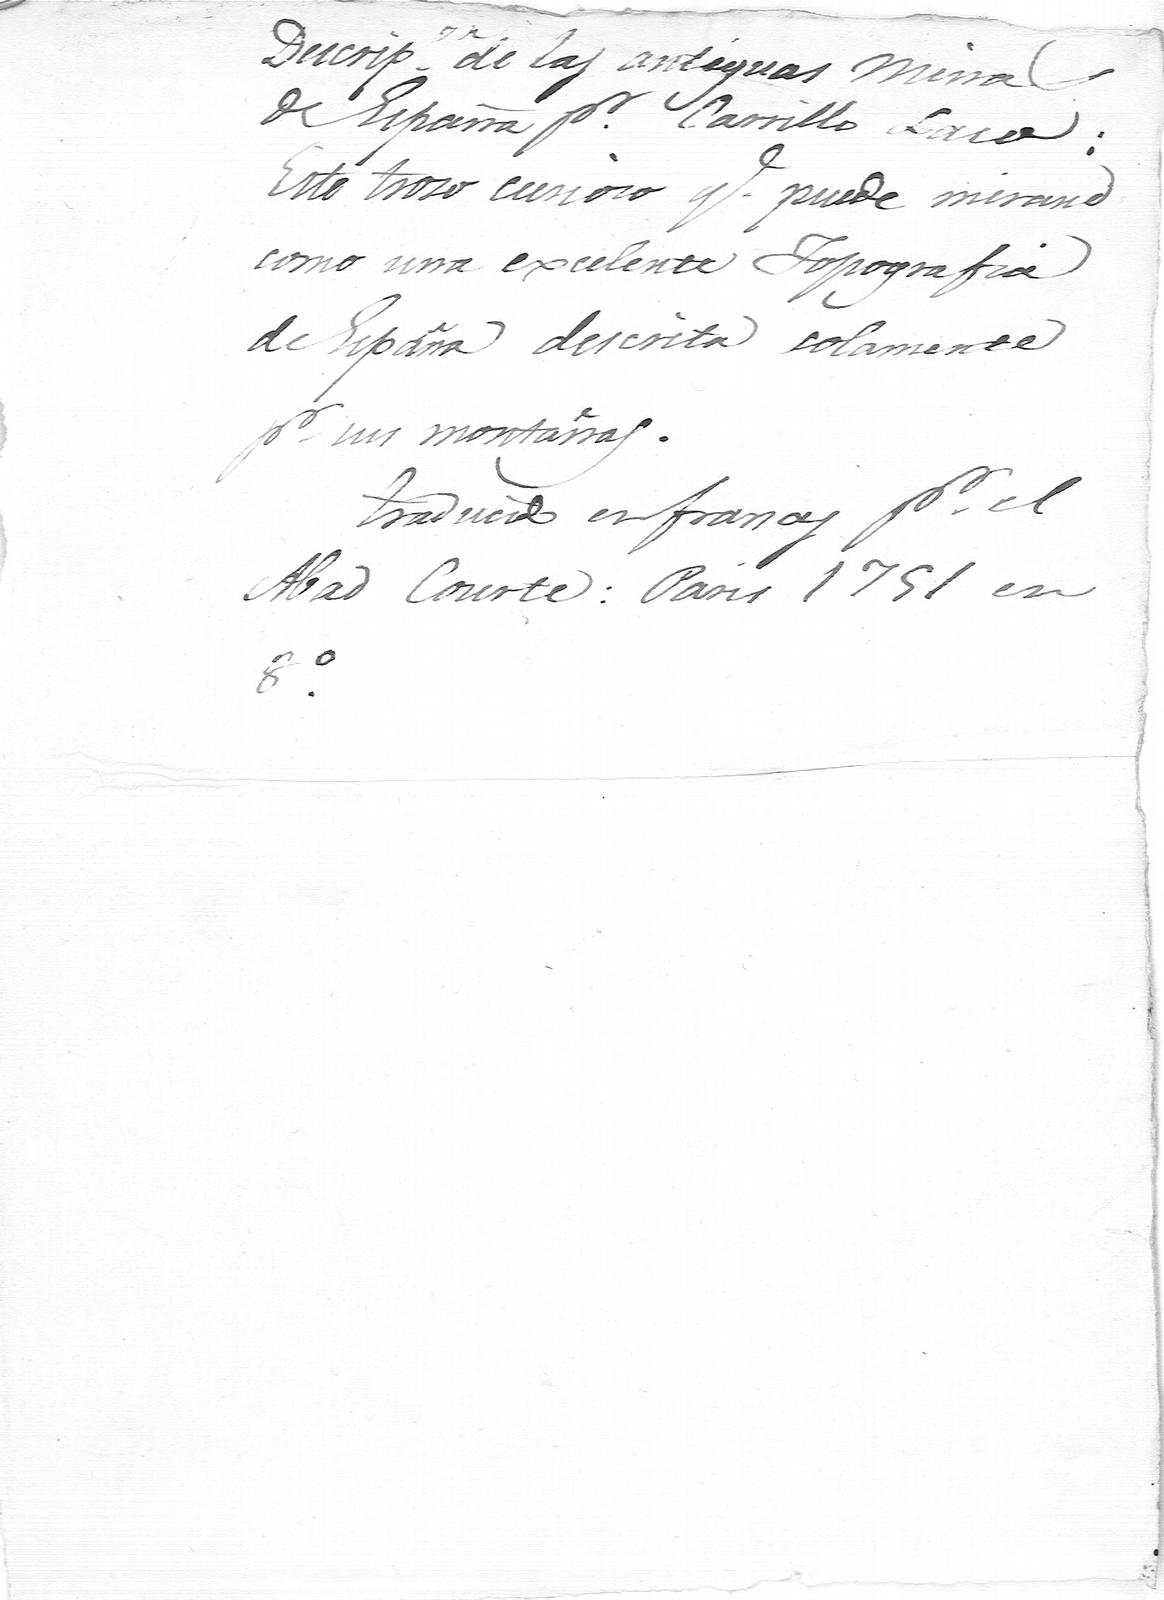 Descrip.on de las antiguas Minas
de España pr. Carrillo Laso:
Este troso curioso qe. puede mirarse
como una excelente Topografia
de España descrita solamente
pr. sus montañas.
traducido en frances pr. el
Abad Courte: Paris 1751 en
8.º